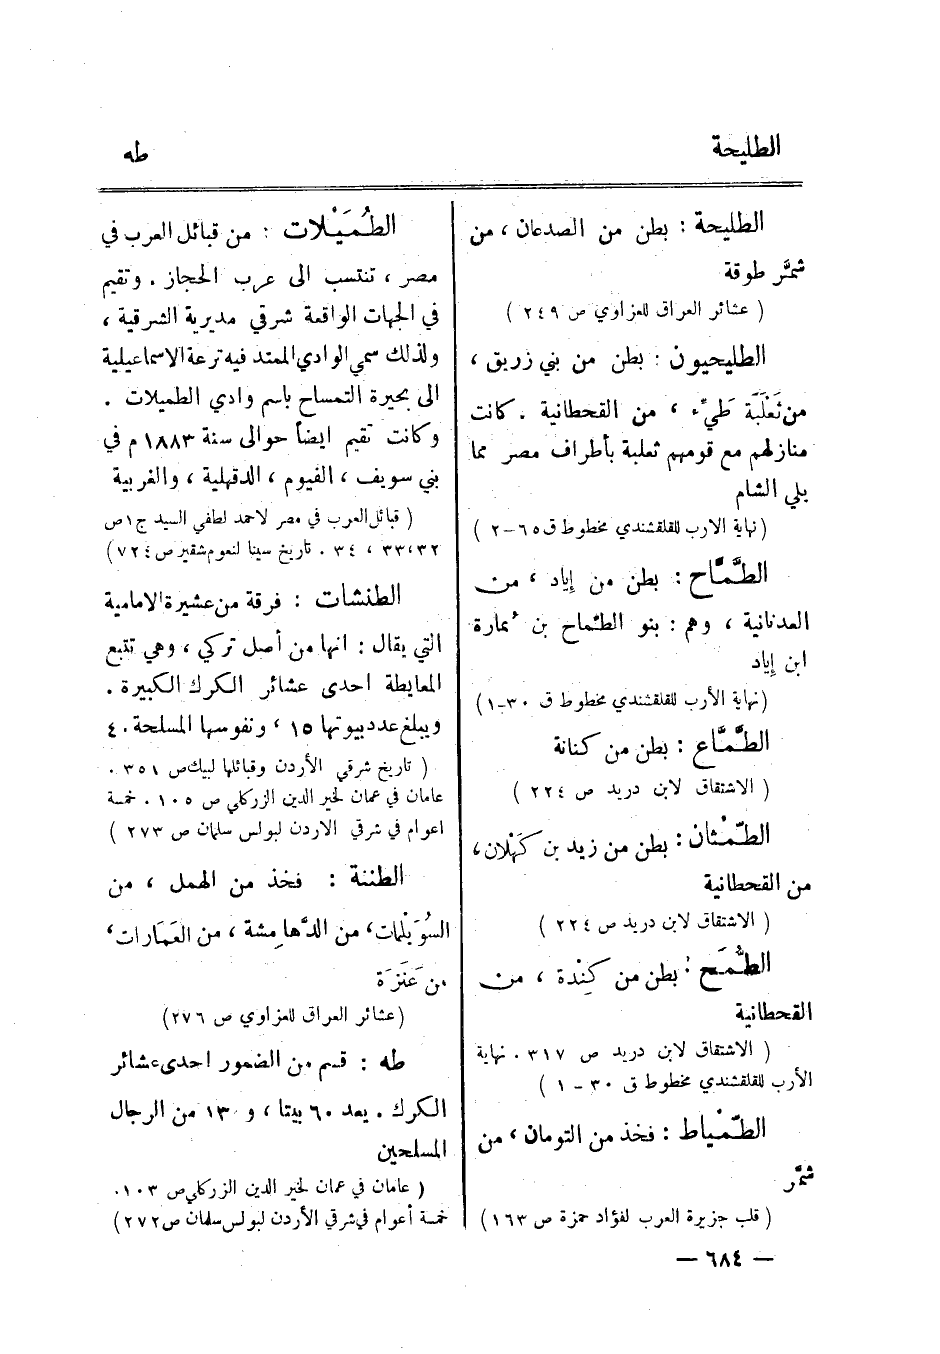 الطليحة
طه
الطليحة : بطن من الصدعان ، من
شمَّر طوقة
( عشائر العراق للعزاوي ص ٢٤٩ )
الطليحيون : بطن من بني زريق ،
من ثَعْلَبَة طَيء ، من القحطانية . كانت
منازلهم مع قومهم ثعلبة بأطراف مصر مما
يلي الشام
( نهاية الارب للقلقشندي مخطوط ق ٦٥-٢ )
الطَّمَّاح : بطن من إياد ، من
العدنانية ، وهم : بنو الطَّماح بن عُمارة
ابن إياد
( نهاية الأرب للقلقشندي مخطوط ق ٣٠-١ )
الطَّمَّاع : بطن من كنانة
( الاشتقاق لابن دريد ص ٢٢٤ )
الطَّمْثان : بطن من زيد بن كَهْلان ،
من القحطانية
( الاشتقاق لابن دريد ص ٢٢٤ )
الطُّمَح : بطن من كِنْدة ، من
القحطانية
( الاشتقاق لابن دريد ص ٣١٧ . نهاية
الأرب للقلقشندي مخطوط ق ٣٠ - ١ )
الطَّمْياط : فخذ من التومان ، من
شمَّر
( قلب جزيرة العرب لفؤاد حمزة ص ١٦٣ )
الطُمَيْلات : من قبائل العرب في
مصر ، تنتسب الى عرب الحجاز . وتقيم
في الجهات الواقعة شرقي مديرية الشرقية ،
ولذلك سمي الوادي الممتد فيه ترعة الاسماعيلية
الى بحيرة التمساح باسم وادي الطميلات .
وكانت تقيم ايضاً حوالى سنة ١٨٨٣ م في
بني سويف ، الفيوم ، الدقهلية ، والغربية
( قبائل العرب في مصر لاحمد لطفي السيد ج ١ ص
٣٢ ، ٣٣ ، ٣٤ . تاريخ سينا لنعوم شقير ص ٧٢٤ )
الطنشات : فرقة من عشيرة الامامية
التي يقال : انها من أصل تركي ، وهي تتبع
المعايطة احدى عشائر الكرك الكبيرة .
ويبلغ عدد بيوتها ١٥ ، ونفوسها المسلحة . ٤
( تاريخ شرقي الأردن وقبائلها لبيك ص ٣٥١ .
عامان في عمان لخير الدين الزركلي ص ١٠٥ . خمسة
اعوام في شرقي الاردن لبولس سلمان ص ٢٧٣ )
الطننة : فخذ من الهمل ، من
السُوَيْلمات ، من الدَّهامِشة ، من العَمَارات ،
من عَنَزَة
( عشائر العراق للعزاوي ص ٢٧٦ )
طه : قسم من الضمور احدى عشائر
الكرك . يعد ٦٠ بيتا ، و ١٣٠ من الرجال
المسلحين
( عامان في عمان لخير الدين الزركلي ص ١٠٣ .
خمسة أعوام في شرقي الأردن لبولس سلمان ص ٢٧٢ )
— ٦٨٤ —